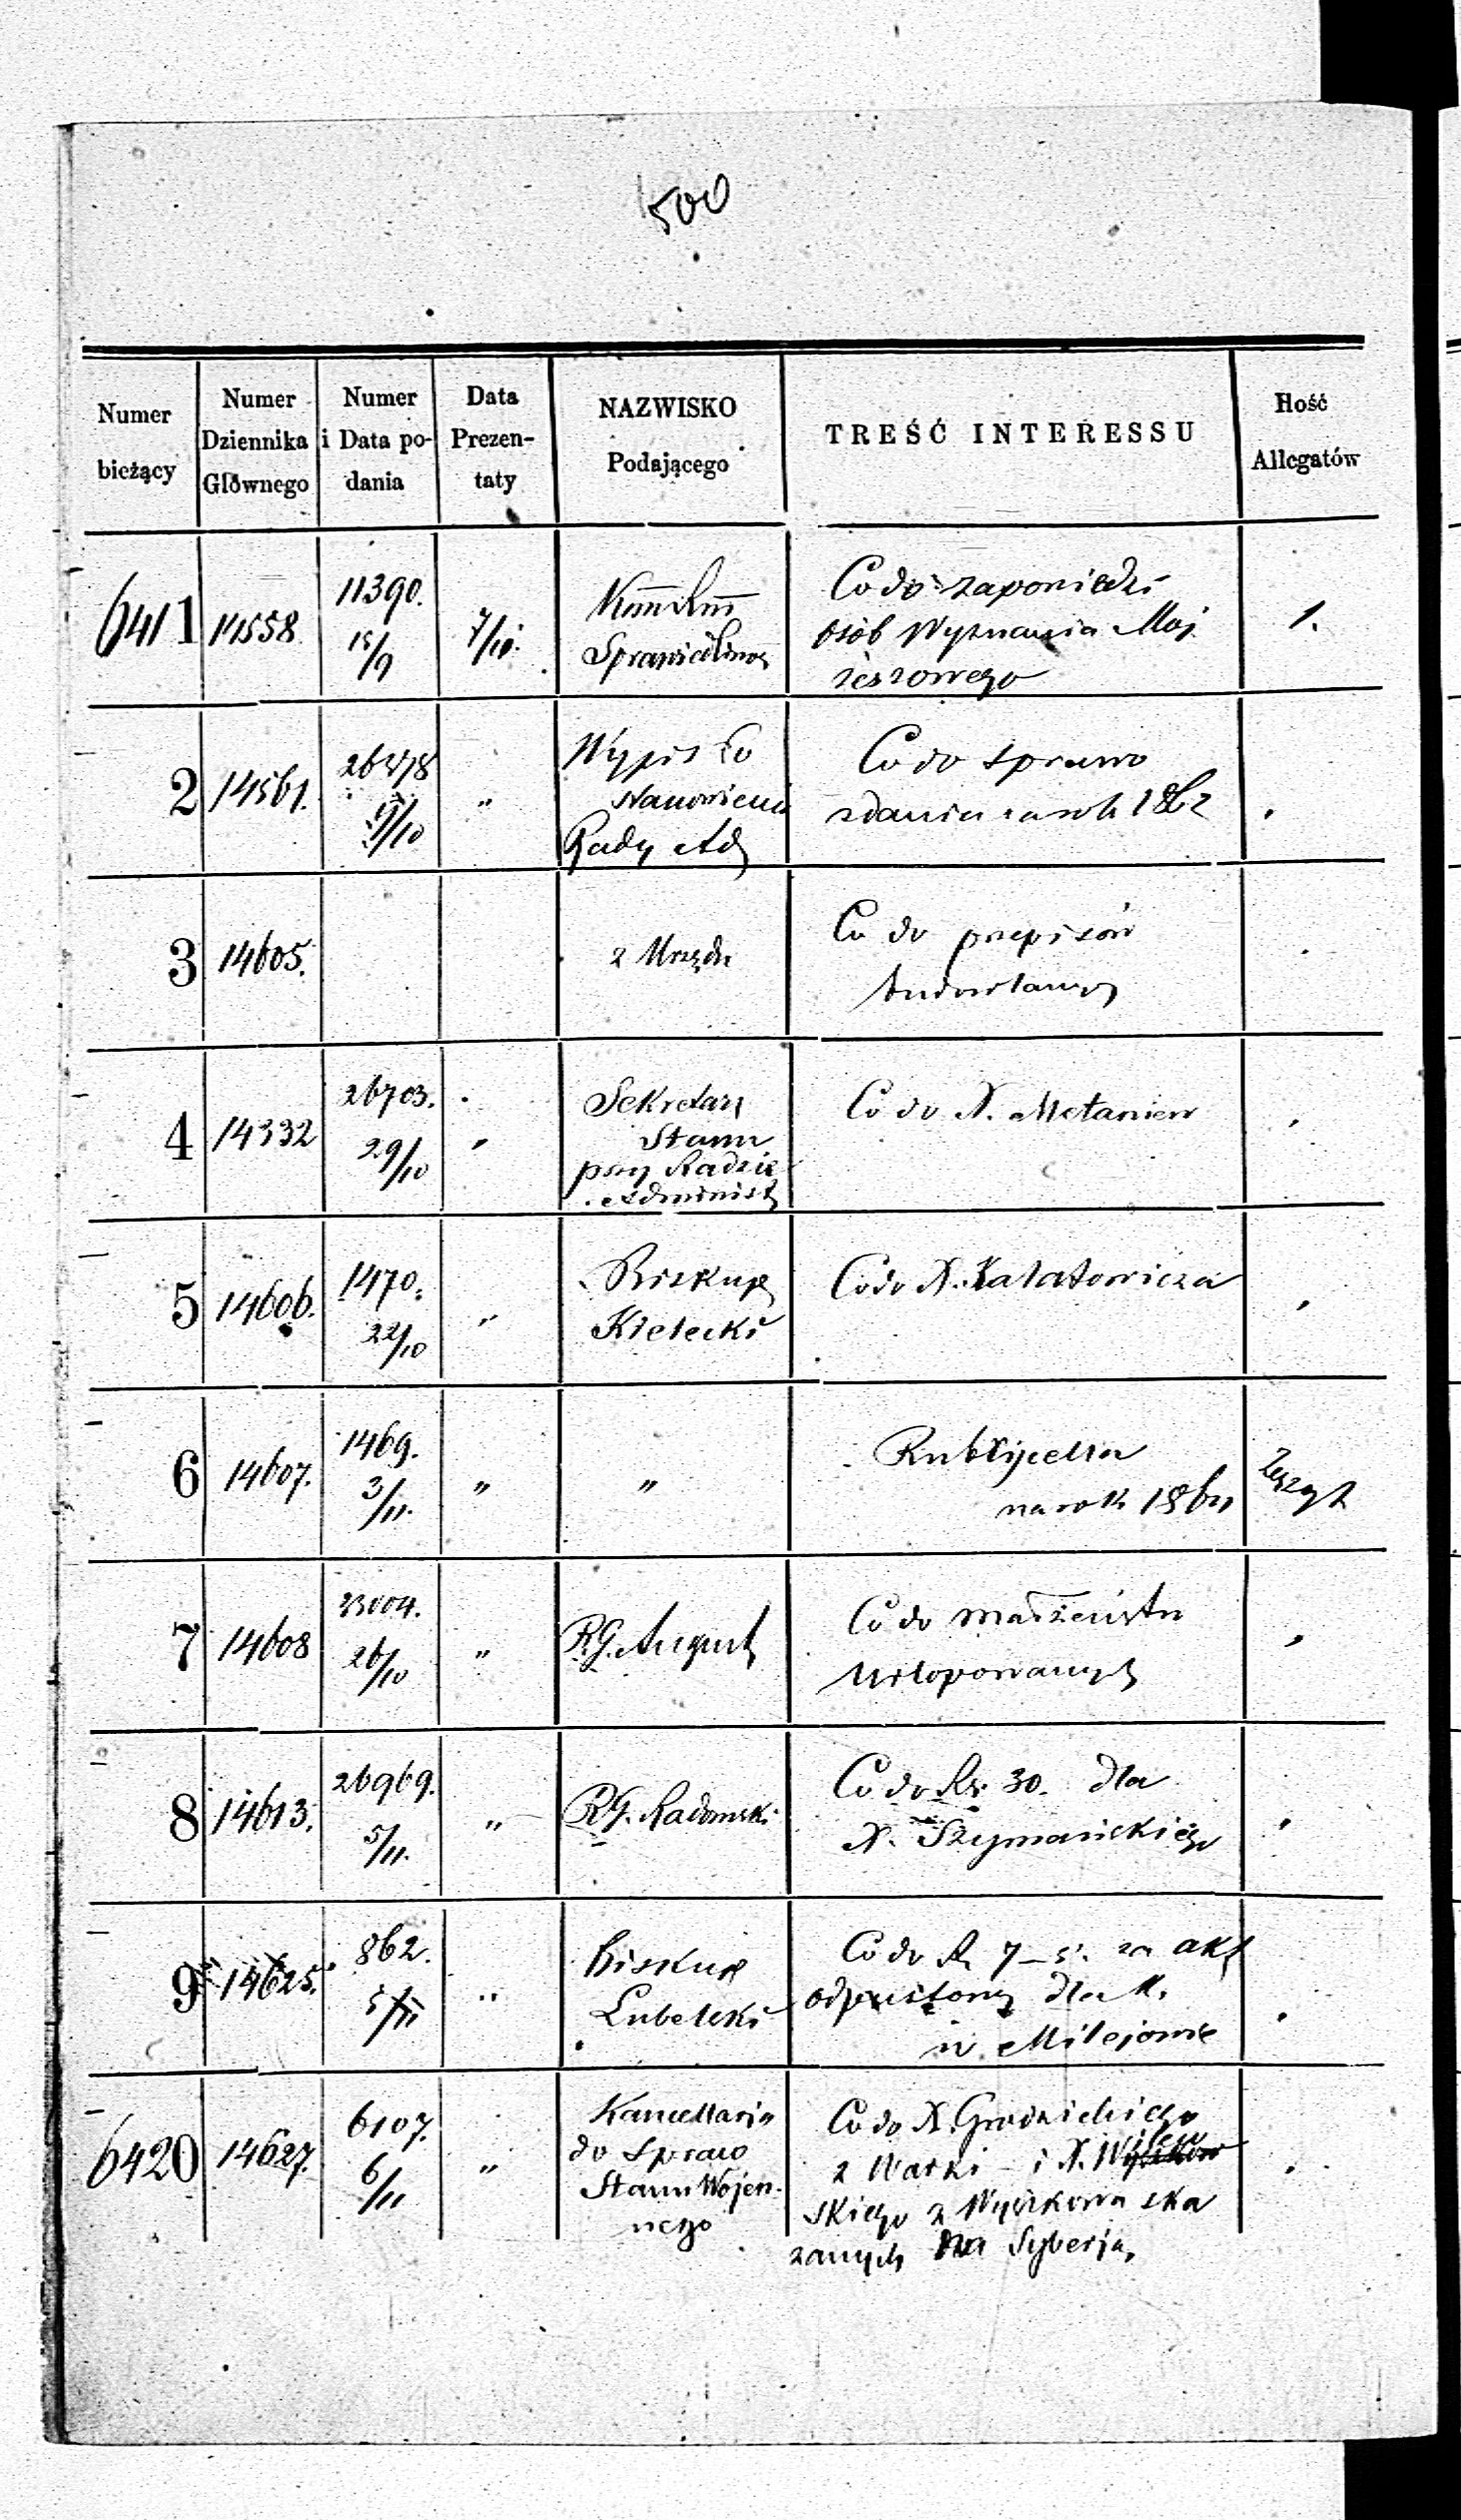 500
Numer bieżący | Numer Dziennika Głównego | Numer i Data podania | Data Prezentaty | NAZWISKO Podającego | TREŚĆ INTERESSU | Ilość Allegatów
6411 | 14558 | 11390. 15/9 | 7/11. | Sprawiedliwos | Co do zapowiedzi
osób Wyznania Moj
żeszowego | 1.
2 | 14561. | 26378 /10 | " | Wypis Po
stanowienia
Rady Ad | Co do sprawo
zdania za rok 1862
3 | 14605. | z Urzędu | Co do przepisów
budowlanych
4 | 14332 | 26703. 29/10 | " | Sekretarz
Stanu
przy Radzie
Administ | Co do X. Metaniew
5 | 14606. | 1470. 22/10 | " | Biskup
Kielecki | Co do X. Kalatowicza
6 | 14607. | 1469. 3/11. | " | " | Rubrycella
na rok 1864 | Zeszyt
7 | 14608 | 23004. 26/10 | " | R.G. August | Co do małżeństw
Urlopowanych
8 | 14613. | 26969. 5/11. | " | R.G. Radomski | Co do Rs. 30. dla
X. Szymańskiego
9 | 14625. | 862. 5/11 | " | Biskup
Lubelski | Co do R. 7–5. za akt
odpustowy dla K.
w Milejowie
6420 | 14627. | 6107. 6/11 | " | Kancellaria
do Spraw
Stanu Wojen-
nego | Co do X. Grodzickiego
z Warki i X.
skiego z Wyszkowa ska
zanych na Syberją,